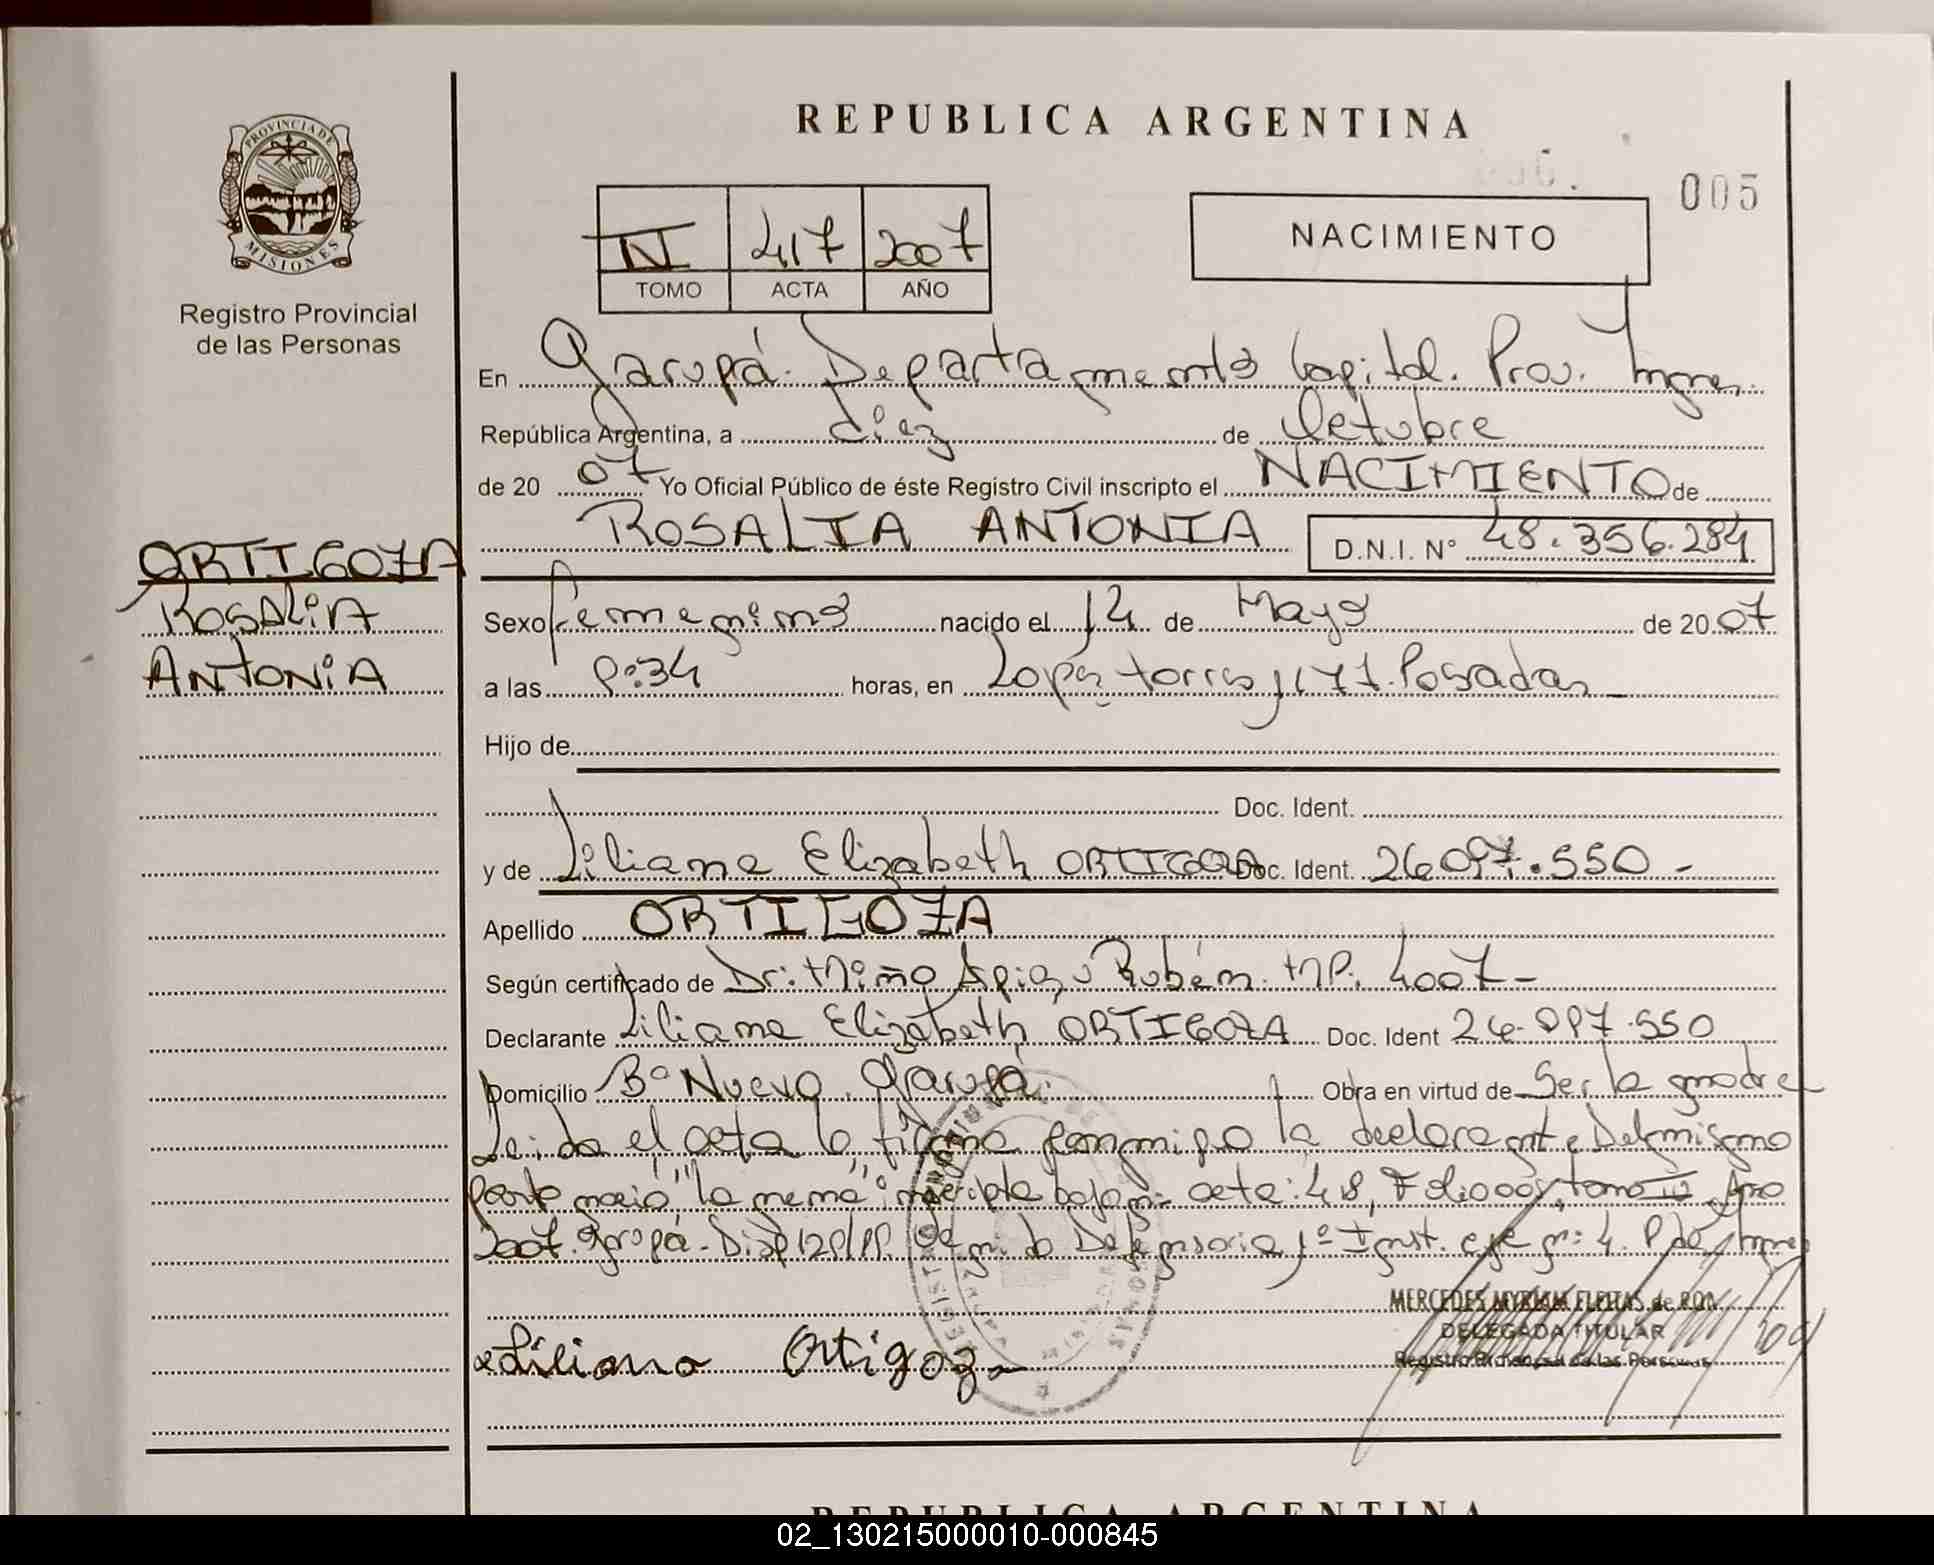 REPUBLICA ARGENTINA
005
PROVINCIA DE MISIONES
Registro Provincial
de las Personas
IV 417 2007
TOMO ACTA AÑO
NACIMIENTO
En Garupá. Departamento Capital. Prov. Mnes.
República Argentina, a diez de Octubre
de 20 07 Yo Oficial Público de éste Registro Civil inscripto el NACIMIENTO de
ROSALIA ANTONIA D.N.I. N° 48.356.284
ORTIGOZA
ROSALiA
ANTONiA
Sexo femenino nacido el 14 de Mayo de 20 07
a las horas, en Posadas
Hijo de
Doc. Ident.
y de Liliana Elizabeth ORTIGOZA Doc. Ident. 26097.550 -
Apellido ORTIGOZA
Según certificado de Dr: Miño Rubén. MP. 4007-
Declarante Liliana Elizabeth ORTIGOZA Doc. Ident 26.097.550
Domicilio B° Nuevo. Garupá. Obra en virtud de Ser la madre
Leida el acta la firma conmigo la declarante
inscripta bajo n: acta: 418, Folio 005, tomo IV Año
2007. Garupá - Defensoria 1° Inst. n: 4. Mnes
MERCEDES MYRIAM FLEITAS de RON
DELEGADA TITULAR
Registro Provincial de las Personas
Liliana Ortigoza
REPUBLICA ARGENTINA
02_130215000010-000845